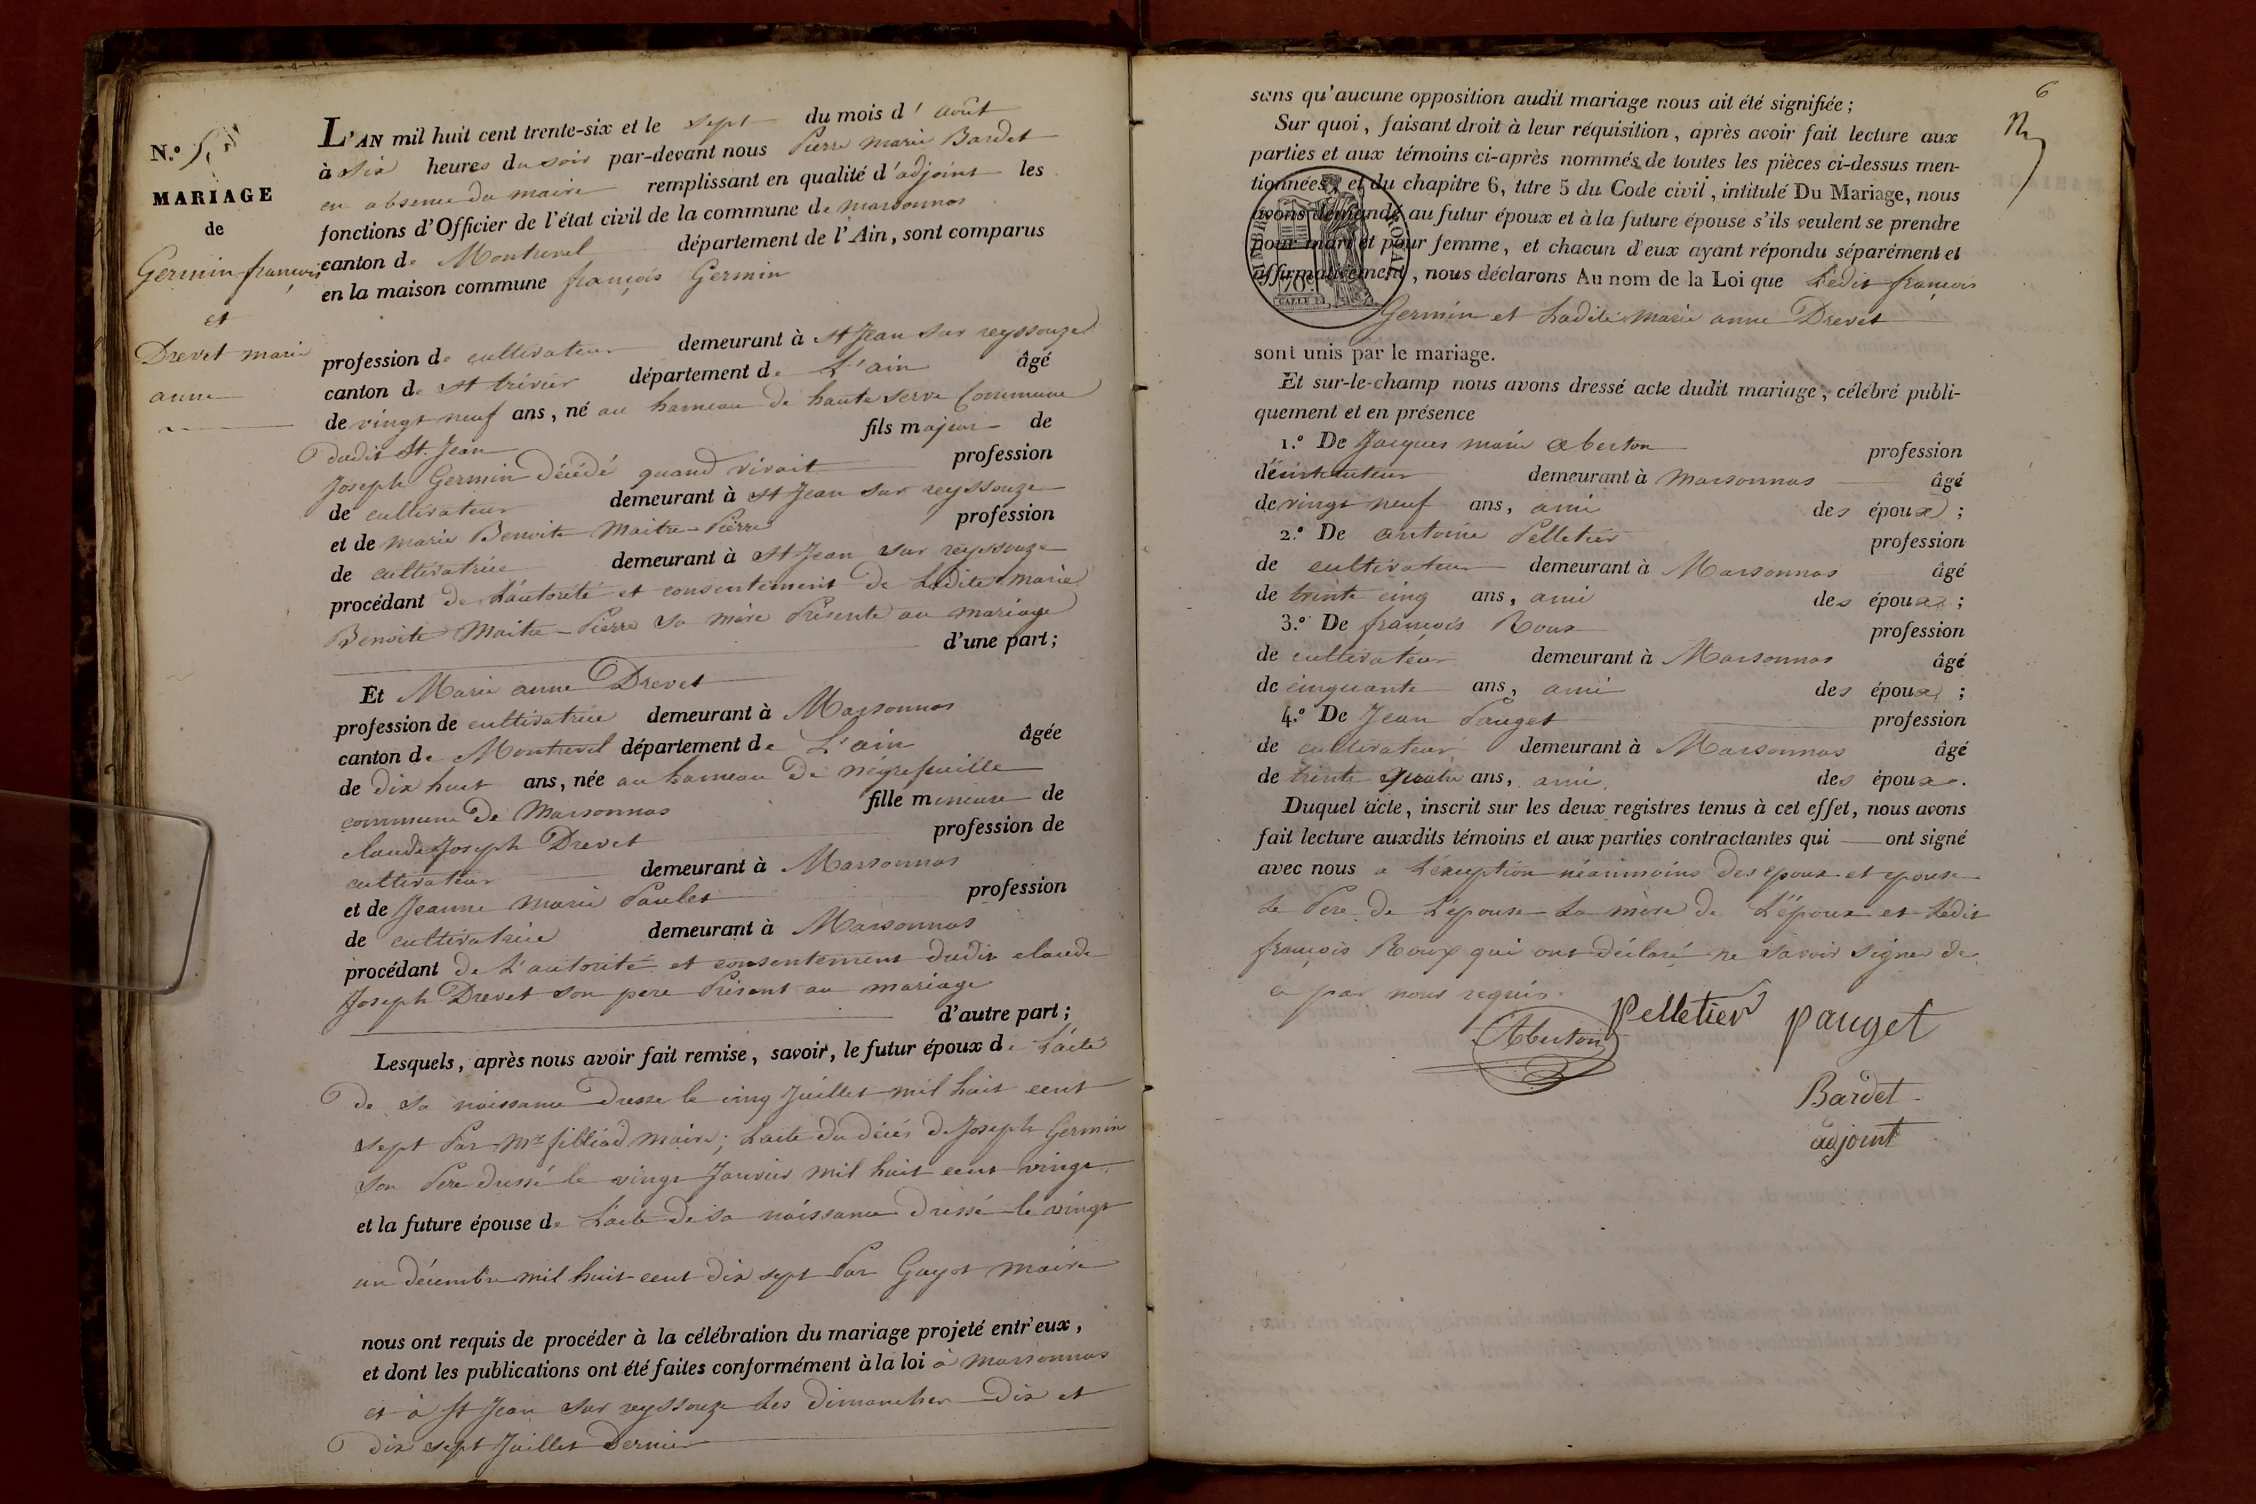 N.º 5
MARIAGE
de
Germin françois
et
Drevet marie
anne
L'AN mil huit cent trente-six et le sept du mois d' août
à six heures du soir par-devant nous Pierre marie Bardet
en absence du maire remplissant en qualité d'adjoint les
fonctions d'Officier de l'état civil de la commune de marsonnas
canton de Montrevel département de l'Ain, sont comparus
en la maison commune françois Germin
profession de cultivateur demeurant à st Jean sur reyssouze
canton de st trivier département de L'ain âgé
de vingt neuf ans, né au hameau de haute serve Commune
dudit St. Jean fils majeur de
Joseph Germin décédé quand vivait profession
de cultivateur demeurant à st Jean sur reyssouze
et de marie Benoite Maitre-Pierre profession
de cultivatrice demeurant à st Jean sur reyssouze
procédant de L'autorité et consentement de Ladite marie
Benoite Maitre-Pierre sa mère Présente au mariage
d'une part;
Et Marie anne Drevet
profession de cultivatrice demeurant à Marsonnas
canton de Montrevel département de L'ain âgée
de dix huit ans, née au hameau de negrefeuille
commune de Marsonnas fille mineure de
claude Joseph Drevet profession de
cultivateur demeurant à Marsonnas
et de Jeanne marie Paulet profession
de cultivatrice demeurant à Marsonnas
procédant de L'autorité et consentement dudit claude
Joseph Drevet son pere Présent au mariage
d'autre part;
Lesquels, après nous avoir fait remise, savoir, le futur époux de L'acte
de sa naissance Dressé le cinq Juillet mil huit cent
sept Par Mr filliod maire; Lacte du décés de Joseph Germin
son Pere dressé le vingt Janvier mil huit cent vingt
et la future épouse de L'acte de sa naissance dressé le vingt
un décembre mil huit cent dix sept Par Guyot maire
nous ont requis de procéder à la célébration du mariage projeté entr'eux,
et dont les publications ont été faites conformément à la loi à marsonnas
et à St Jean sur reyssouze les dimanches Dix et
dix sept Juillet Dernier
6
sans qu'aucune opposition audit mariage nous ait été signifiée;
Sur quoi, faisant droit à leur réquisition, après avoir fait lecture aux
parties et aux témoins ci-après nommés de toutes les pièces ci-dessus men-
tionnées, et du chapitre 6, titre 5 du Code civil, intitulé Du Mariage, nous
avons demandé au futur époux et à la future épouse s'ils veulent se prendre
pour mari et pour femme, et chacun d'eux ayant répondu séparément et
affirmativement, nous déclarons Au nom de la Loi que Ledit françois
Germin et Ladite marie anne Drevet
TIMBRE ROYAL
70c
sont unis par le mariage.
Et sur-le-champ nous avons dressé acte dudit mariage, célébré publi-
quement et en présence
1.º De Jacques marie Aberton profession
d'instituteur demeurant à marsonnas âgé
de vingt neuf ans, ami des époux;
2.º De antoine Pelletier profession
de cultivateur demeurant à Marsonnas âgé
de trente cinq ans, ami des époux;
3.º De françois Roux profession
de cultivateur demeurant à Marsonnas âgé
de cinquante ans, ami des époux;
4.º De Jean Pauget profession
de cultivateur demeurant à Marsonnas âgé
de trente quatre ans, ami des époux.
Duquel acte, inscrit sur les deux registres tenus à cet effet, nous avons
fait lecture auxdits témoins et aux parties contractantes qui ont signé
avec nous a L'exeption néanmoins des epoux et epouse
Le Pere de L'épouse La mère de L'époux et Ledit
françois Roux qui ont déclaré ne savoir signer de
ce par nous requis.
Aberton Pelletier Pauget
Bardet
adjoint